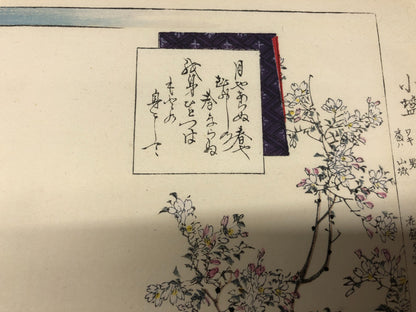 月やあらぬ春や
むかしの
春ならぬ
我身ひとつは
もとの
身にして
小鹽